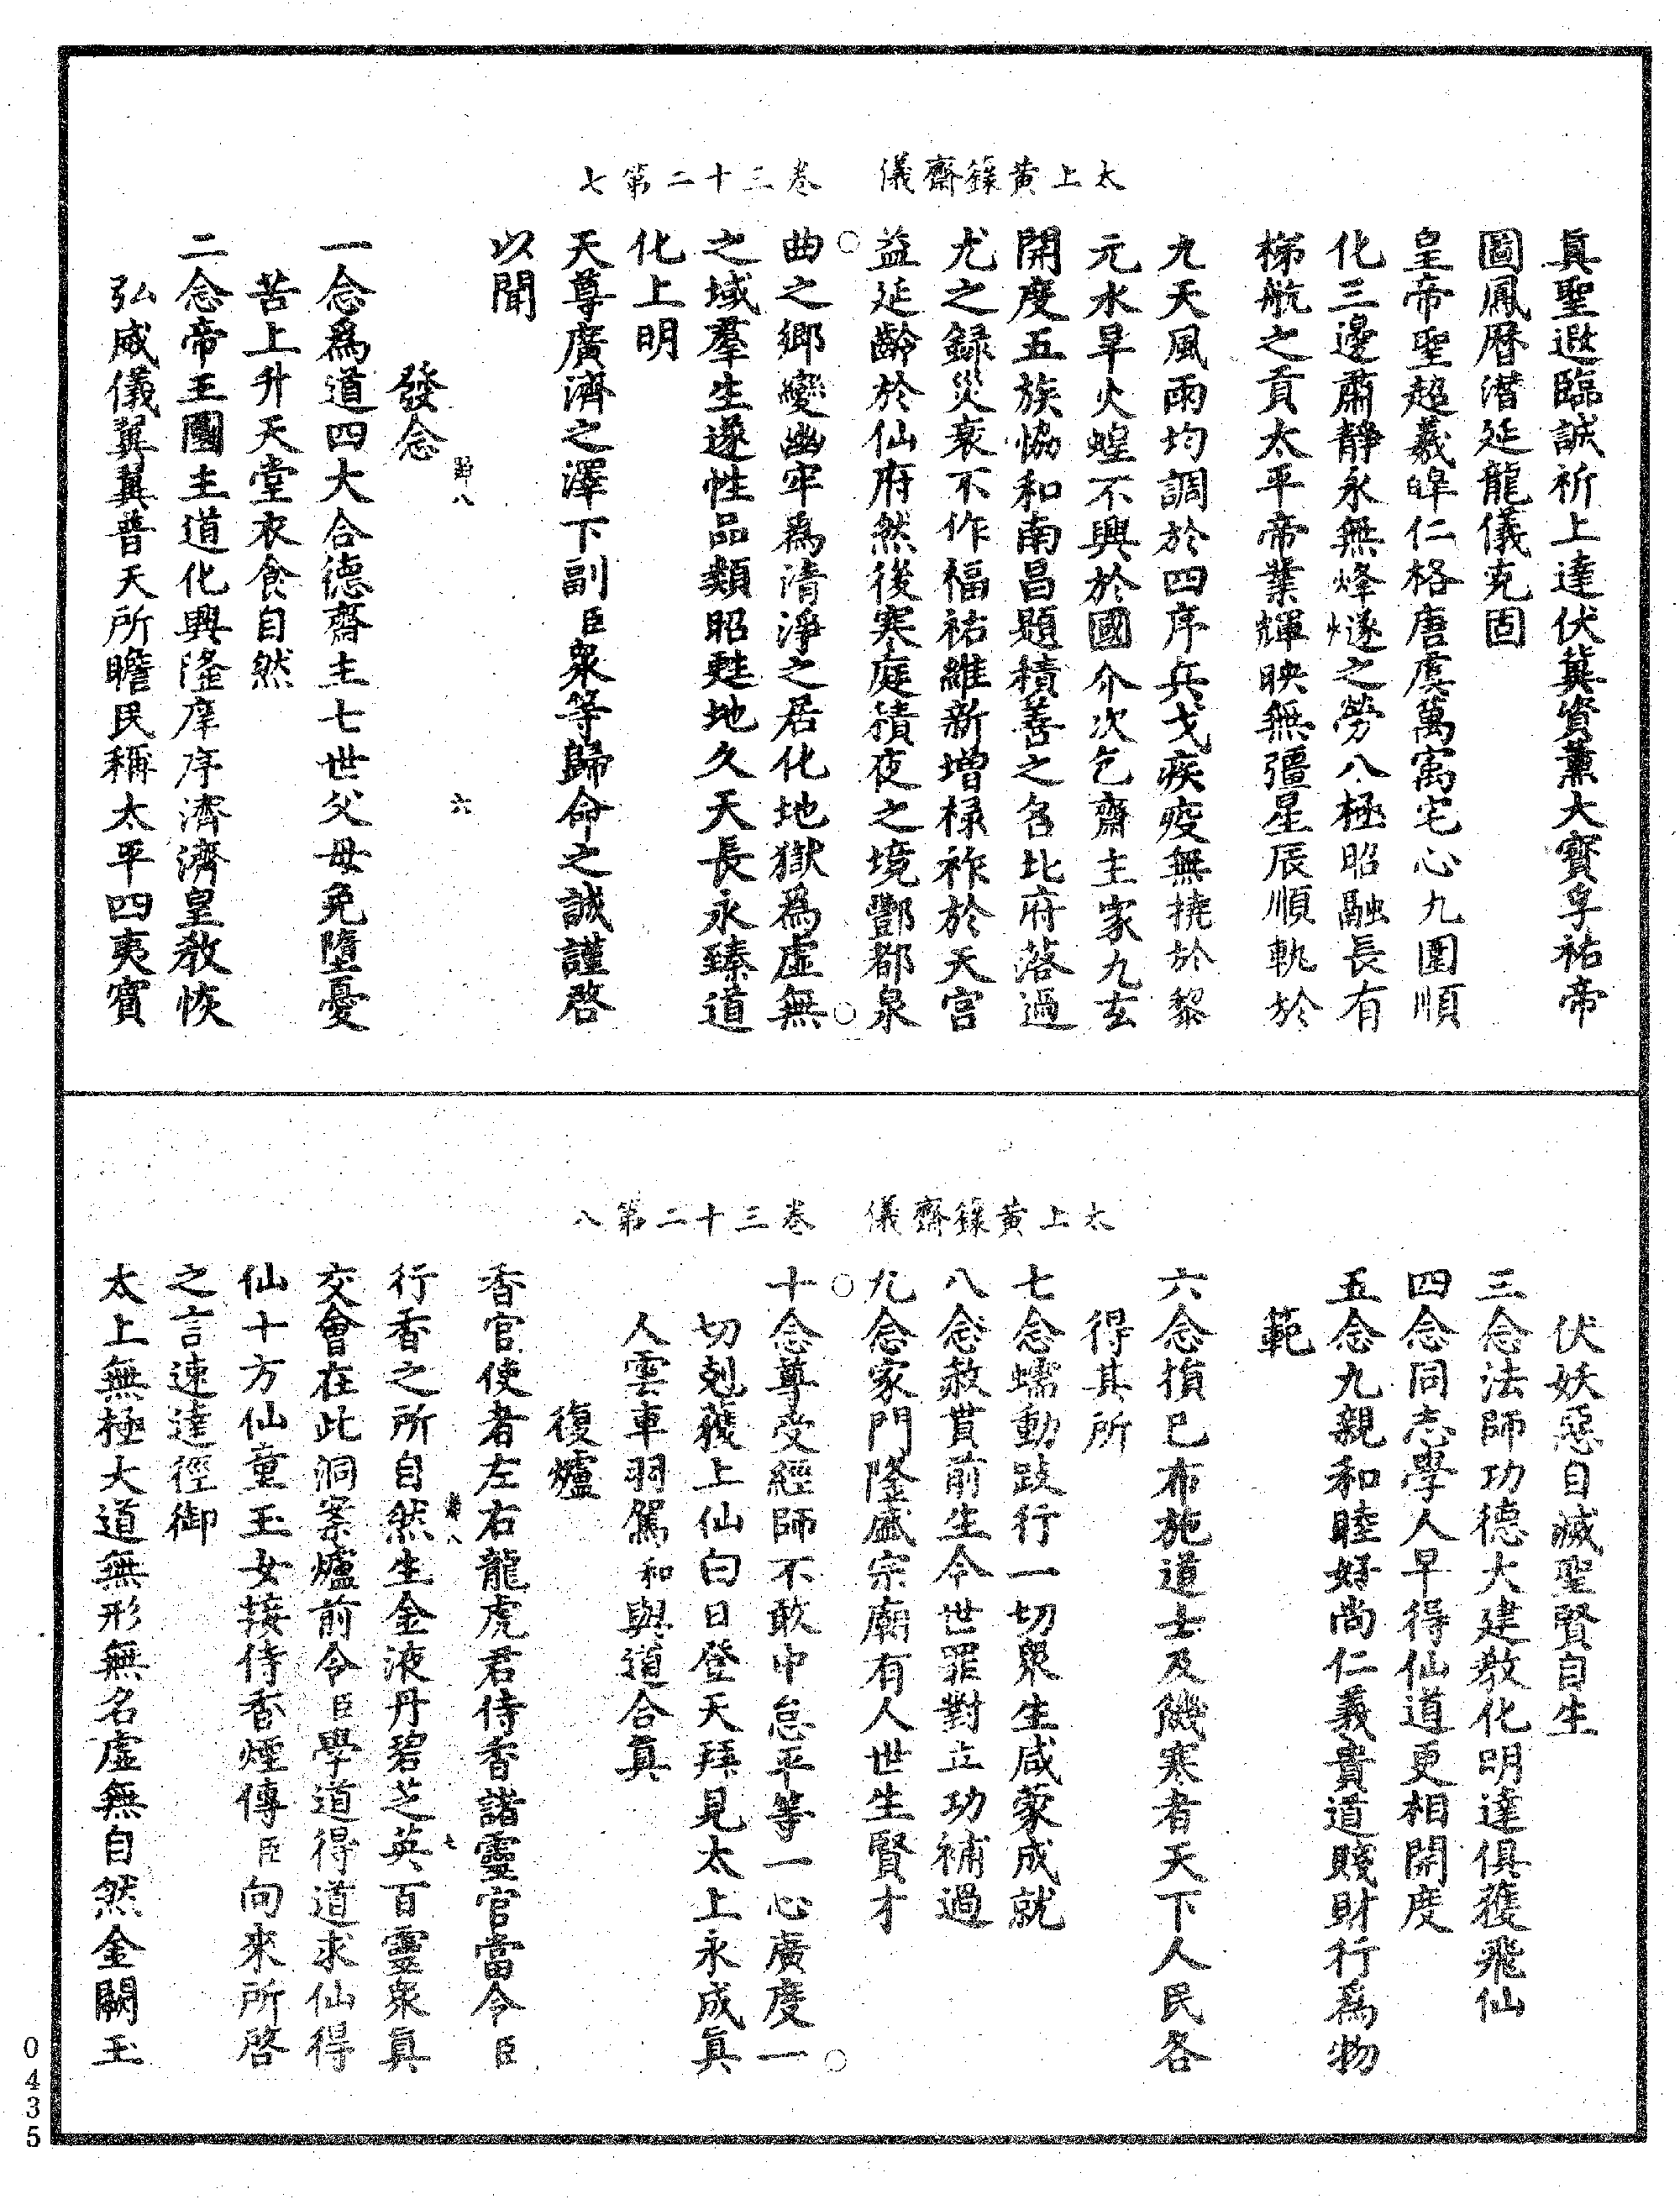 太上黃籙齋儀　卷三十二第七
真聖遐臨誠祈上達伏冀資薰大寶孚祐帝
圖鳳曆潛延龍儀克固
皇帝聖超羲皞仁格唐虞萬寓宅心九圍順
化三邊肅靜永無烽燧之勞八極昭融長有
梯航之貢太平帝業輝映無彊星辰順軌於
九天風雨均調於四序兵戈疾疫無撓於黎
元水旱火蝗不興於國介次乞齋主家九玄
開度五族恊和南昌題積善之名北府落過
尤之録災衰不作福祐維新增祿祚於天官
益延齡於仙府然後寒庭積夜之境酆都泉
曲之鄉變幽牢為清淨之居化地獄為虛無
之域羣生遂性品類昭甦地久天長永臻道
化上明
天尊廣濟之澤下副臣衆等歸命之誠謹啓
以聞
發念
八
六
一念為道四大合德齋主七世父母免墮憂
苦上升天堂衣食自然
二念帝王國主道化興隆庠序濟濟皇教恢
弘威儀翼翼普天所瞻民稱太平四夷賓
太上黃籙齋儀　卷三十二第八
伏妖惡自滅聖賢自生
三念法師功德大建教化明達俱獲飛仙
四念同志學人早得仙道更相開度
五念九親和睦好尚仁義貴道賤財行為物
範
六念損己布施道士及饑寒者天下人民各
得其所
七念蠕動跂行一切衆生咸蒙成就
八念赦貰前生今世罪對立功補過
九念家門隆盛宗廟有人世生賢才
十念尊受經師不敢中怠平等一心廣度一
切剋獲上仙白日登天拜見太上永成真
人雲車羽駕和與道合真
復爐
香官使者左右龍虎君侍香諸靈官當令臣
八
七
行香之所自然生金液丹碧芝英百靈衆真
交會在此洞案爐前令臣學道得道求仙得
仙十方仙童玉女接侍香煙傳臣向來所啓
之言速達徑御
太上無極大道無形無名虛無自然金闕玉
0435